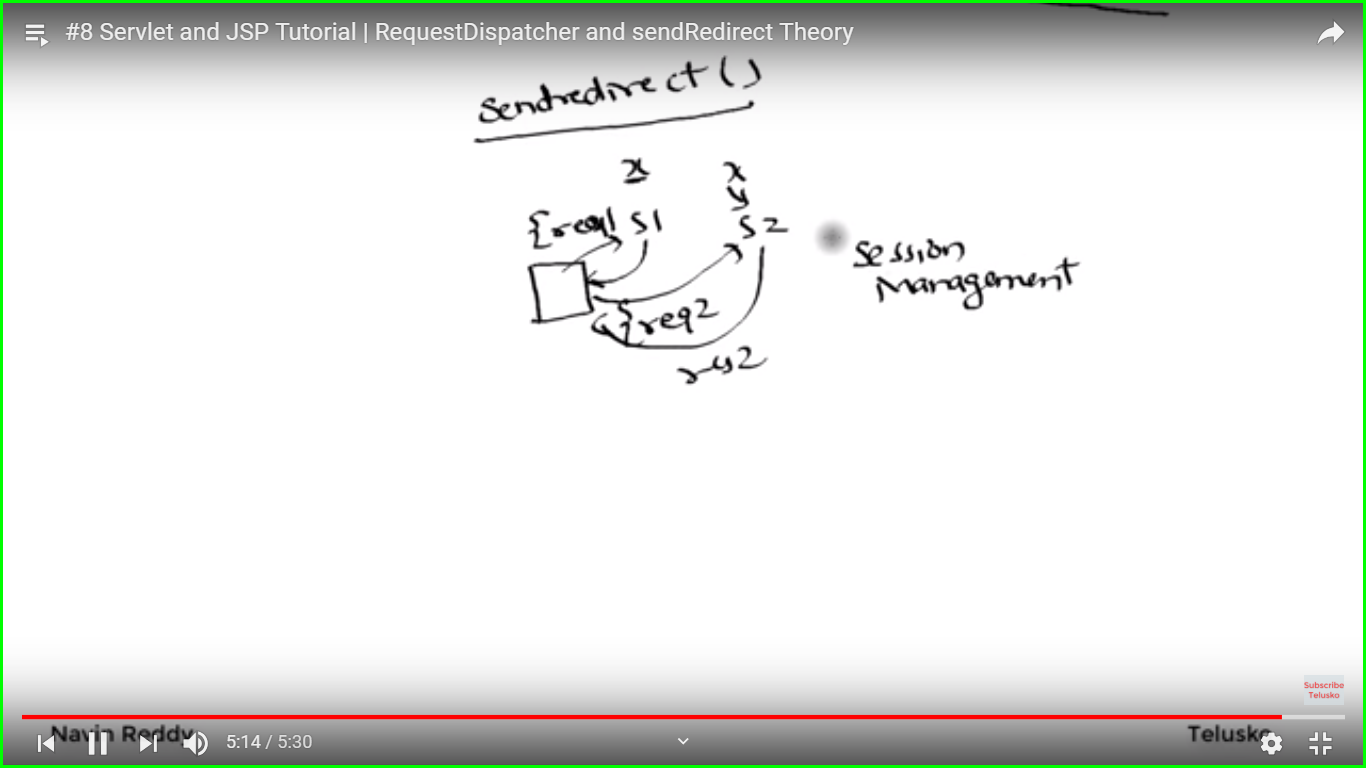 #8 Servlet and JSP Tutorial | RequestDispatcher and sendRedirect Theory
Sendredirect()
x x
y
{req1 S1 S2
Session
Management
{req2
res2
Subscribe
Telusko
Navin Reddy
Telusko
5:14 / 5:30